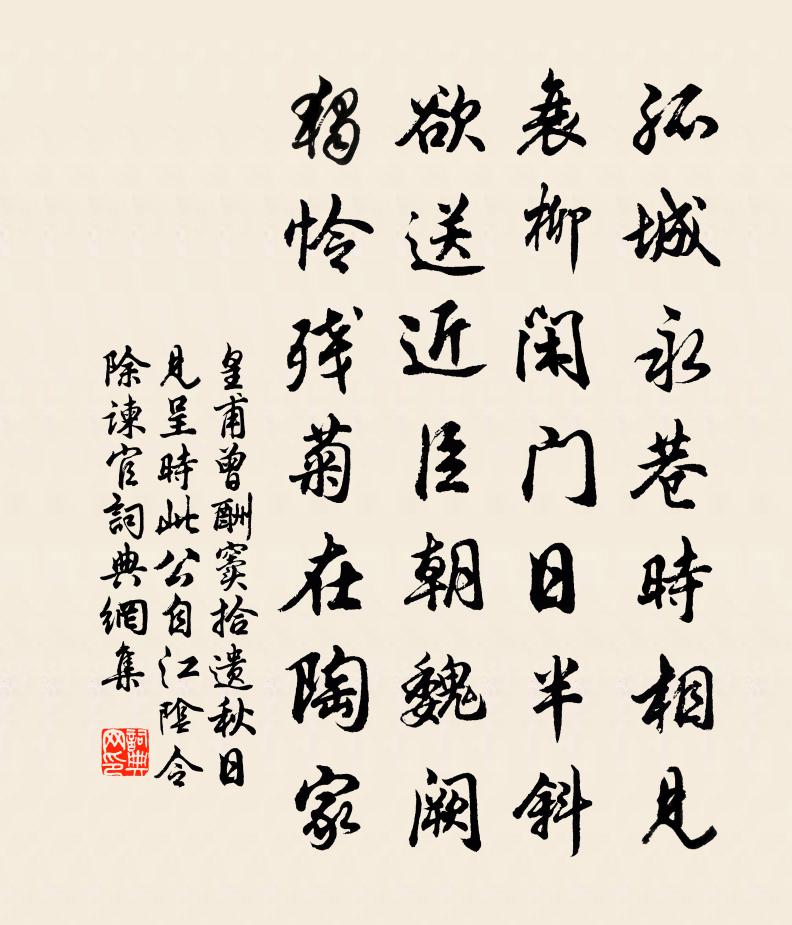 孤城永巷時相見
衰柳闲门日半斜
欲送近臣朝魏阙
犹怜残菊在陶家
皇甫曾酬窦拾遗秋日
见呈時此公自江陰令
除谏官詞典網集
詞典网印